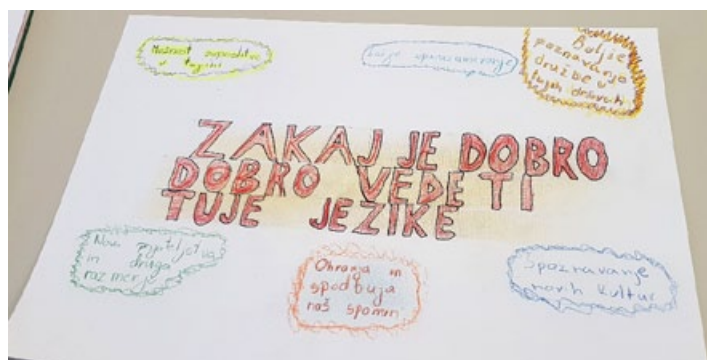 Možnost zaposlitve
v tujini
Boljše
poznavanje
družbe v
tujih državah
ZAKAJ JE DOBRO
DOBRO VEDETI
TUJE JEZIKE
Nova prijateljstva
in druga
razmerja
Ohranja in
spodbuja
naš spomin
Spoznavanje
novih kultur